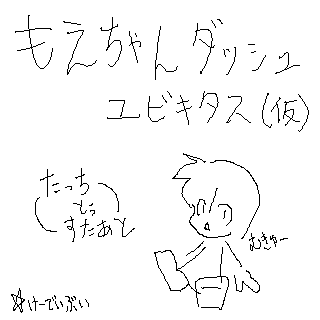 もえちゃんダッシュ
ユビキタス(仮)
たっち
とぅ
すたあと
むきゅー
☆けーでぃぶい